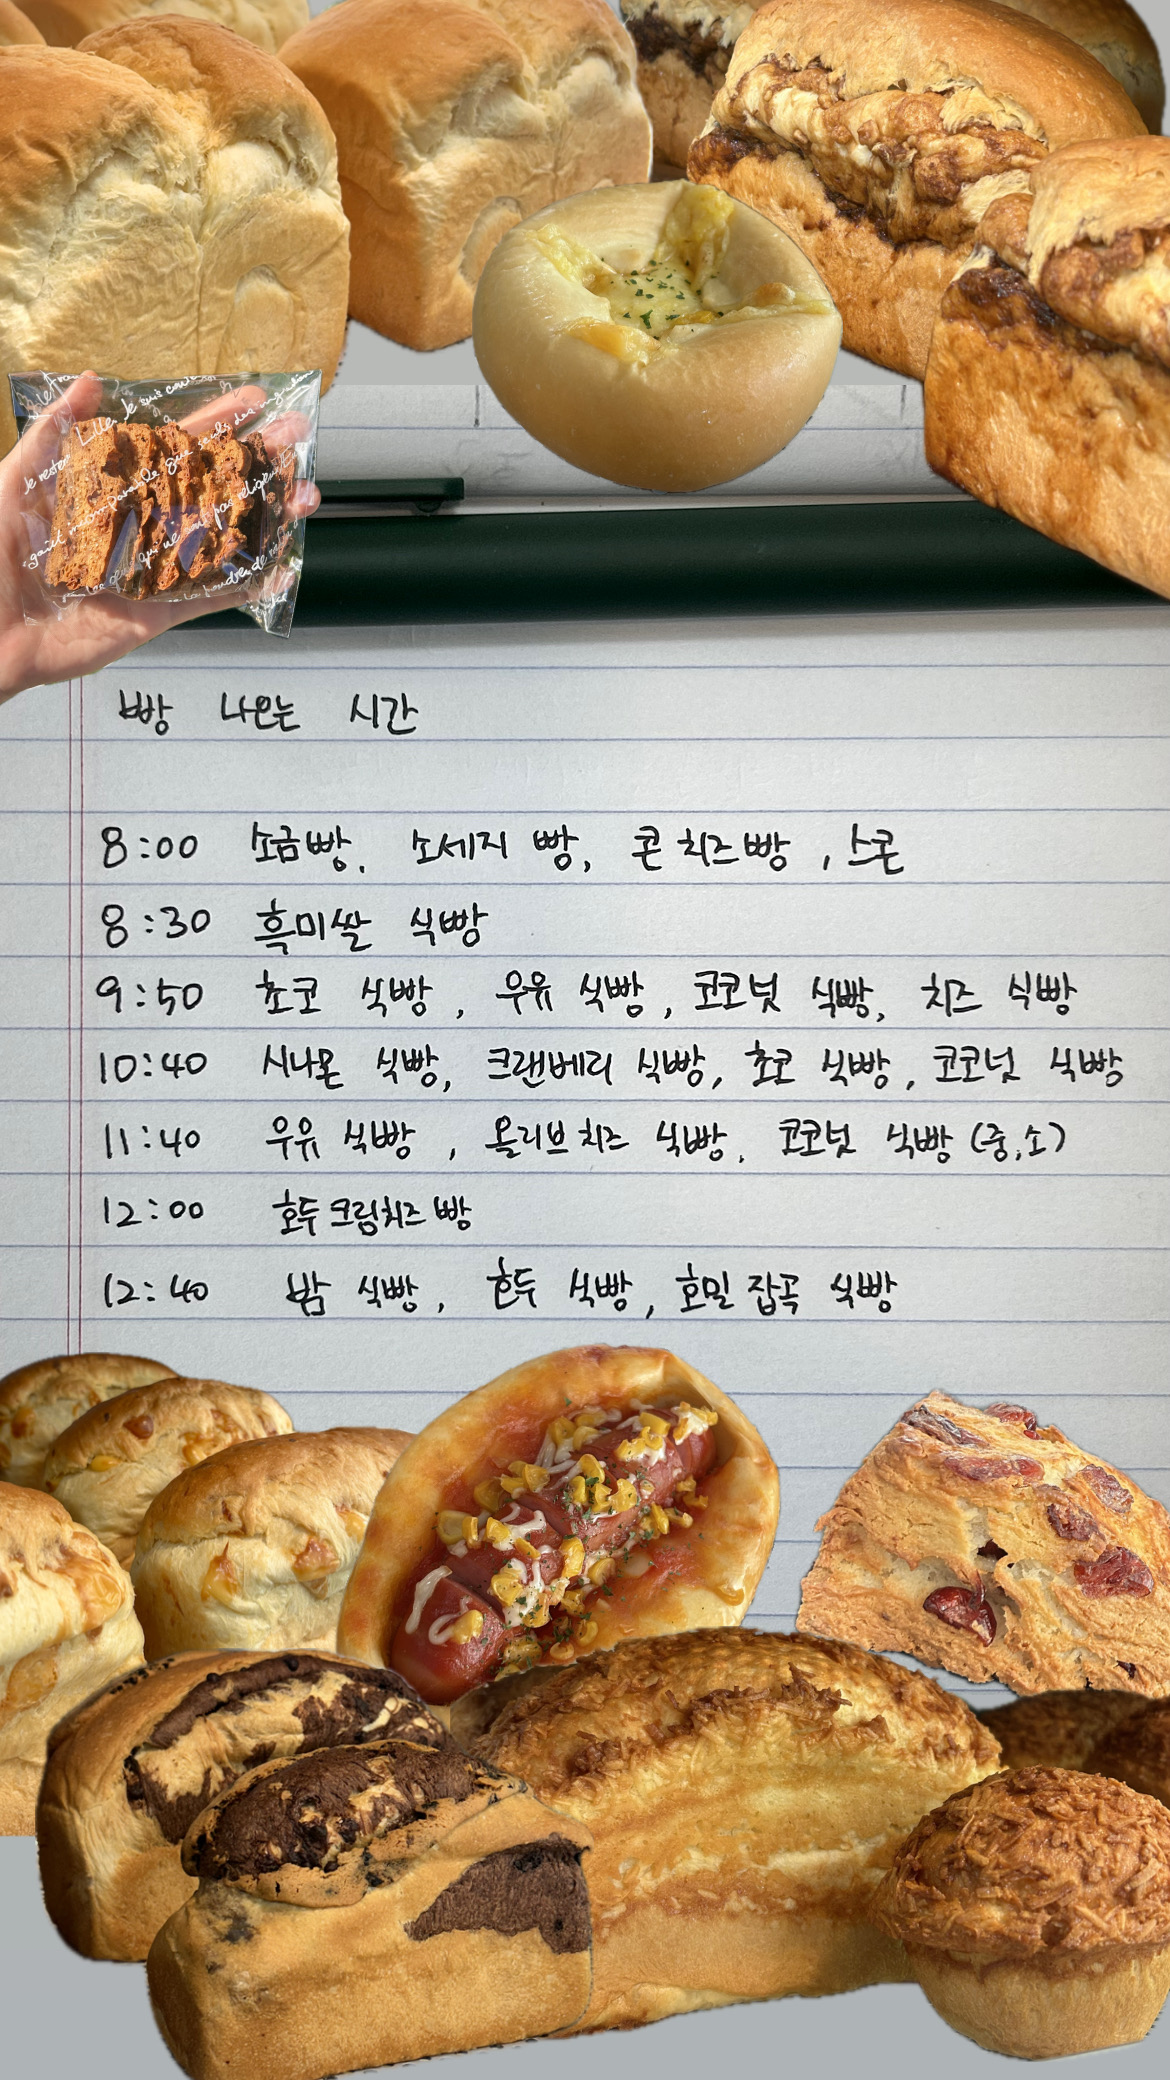 빵 나오는 시간
8:00 소금빵, 소세지 빵, 콘치즈빵, 스콘
8:30 흑미쌀 식빵
9:50 초코 식빵, 우유 식빵, 코코넛 식빵, 치즈 식빵
10:40 시나몬 식빵, 크랜베리 식빵, 초코 식빵, 코코넛 식빵
11:40 우유 식빵, 올리브치즈 식빵, 코코넛 식빵(중,소)
12:00 호두크림치즈빵
12:40 밤 식빵, 호두 식빵, 호밀잡곡 식빵